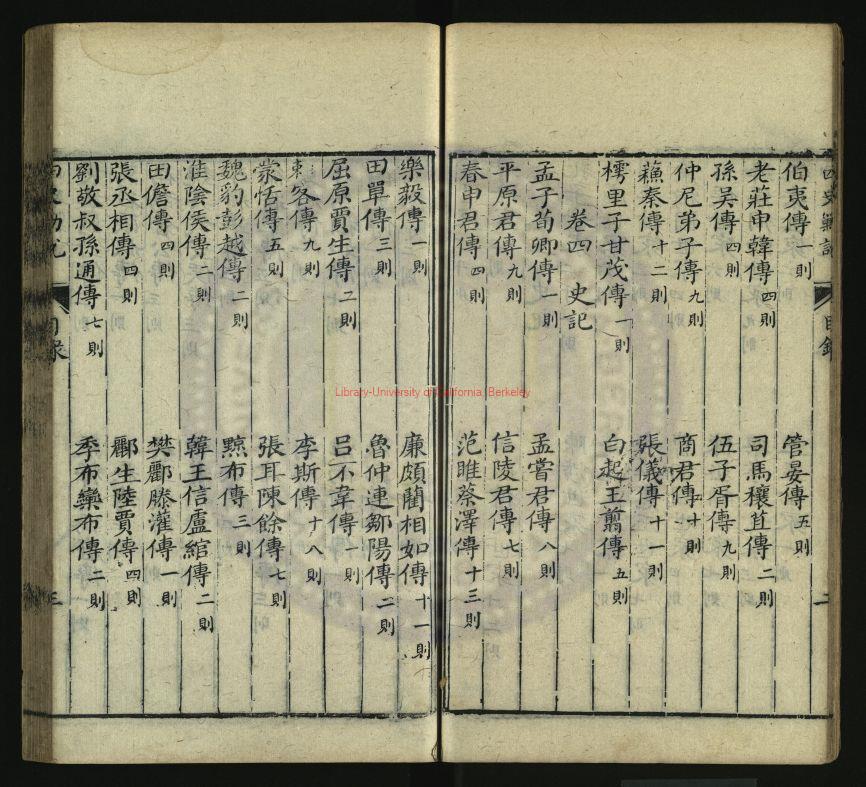 伯夷傳 一則 管晏傳 五則
老莊申韓傳 四則 司馬穰苴傳 二則
孫吳傳 四則 伍子胥傳 九則
仲尼弟子傳 九則 商君傳 十則
蘇秦傳 十二則 張儀傳 十一則
樗里子甘茂傳 一則 白起王翦傳 五則
卷四 史記
孟子荀卿傳 一則 孟嘗君傳 八則
平原君傳 九則 信陵君傳 七則
春申君傳 四則 范睢蔡澤傳 十三則
目錄
二
樂毅傳 一則 廉頗藺相如傳 十一則
田單傳 三則 魯仲連鄒陽傳 二則
屈原賈生傳 二則 呂不韋傳 一則
刺客傳 九則 李斯傳 十八則
蒙恬傳 五則 張耳陳餘傳 七則
魏豹彭越傳 二則 黥布傳 三則
淮陰侯傳 二則 韓王信盧綰傳 二則
田儋傳 四則 樊酈滕灌傳 一則
張丞相傳 四則 酈生陸賈傳 四則
劉敬叔孫通傳 七則 季布欒布傳 二則
目錄
三
Library-University of California, Berkeley